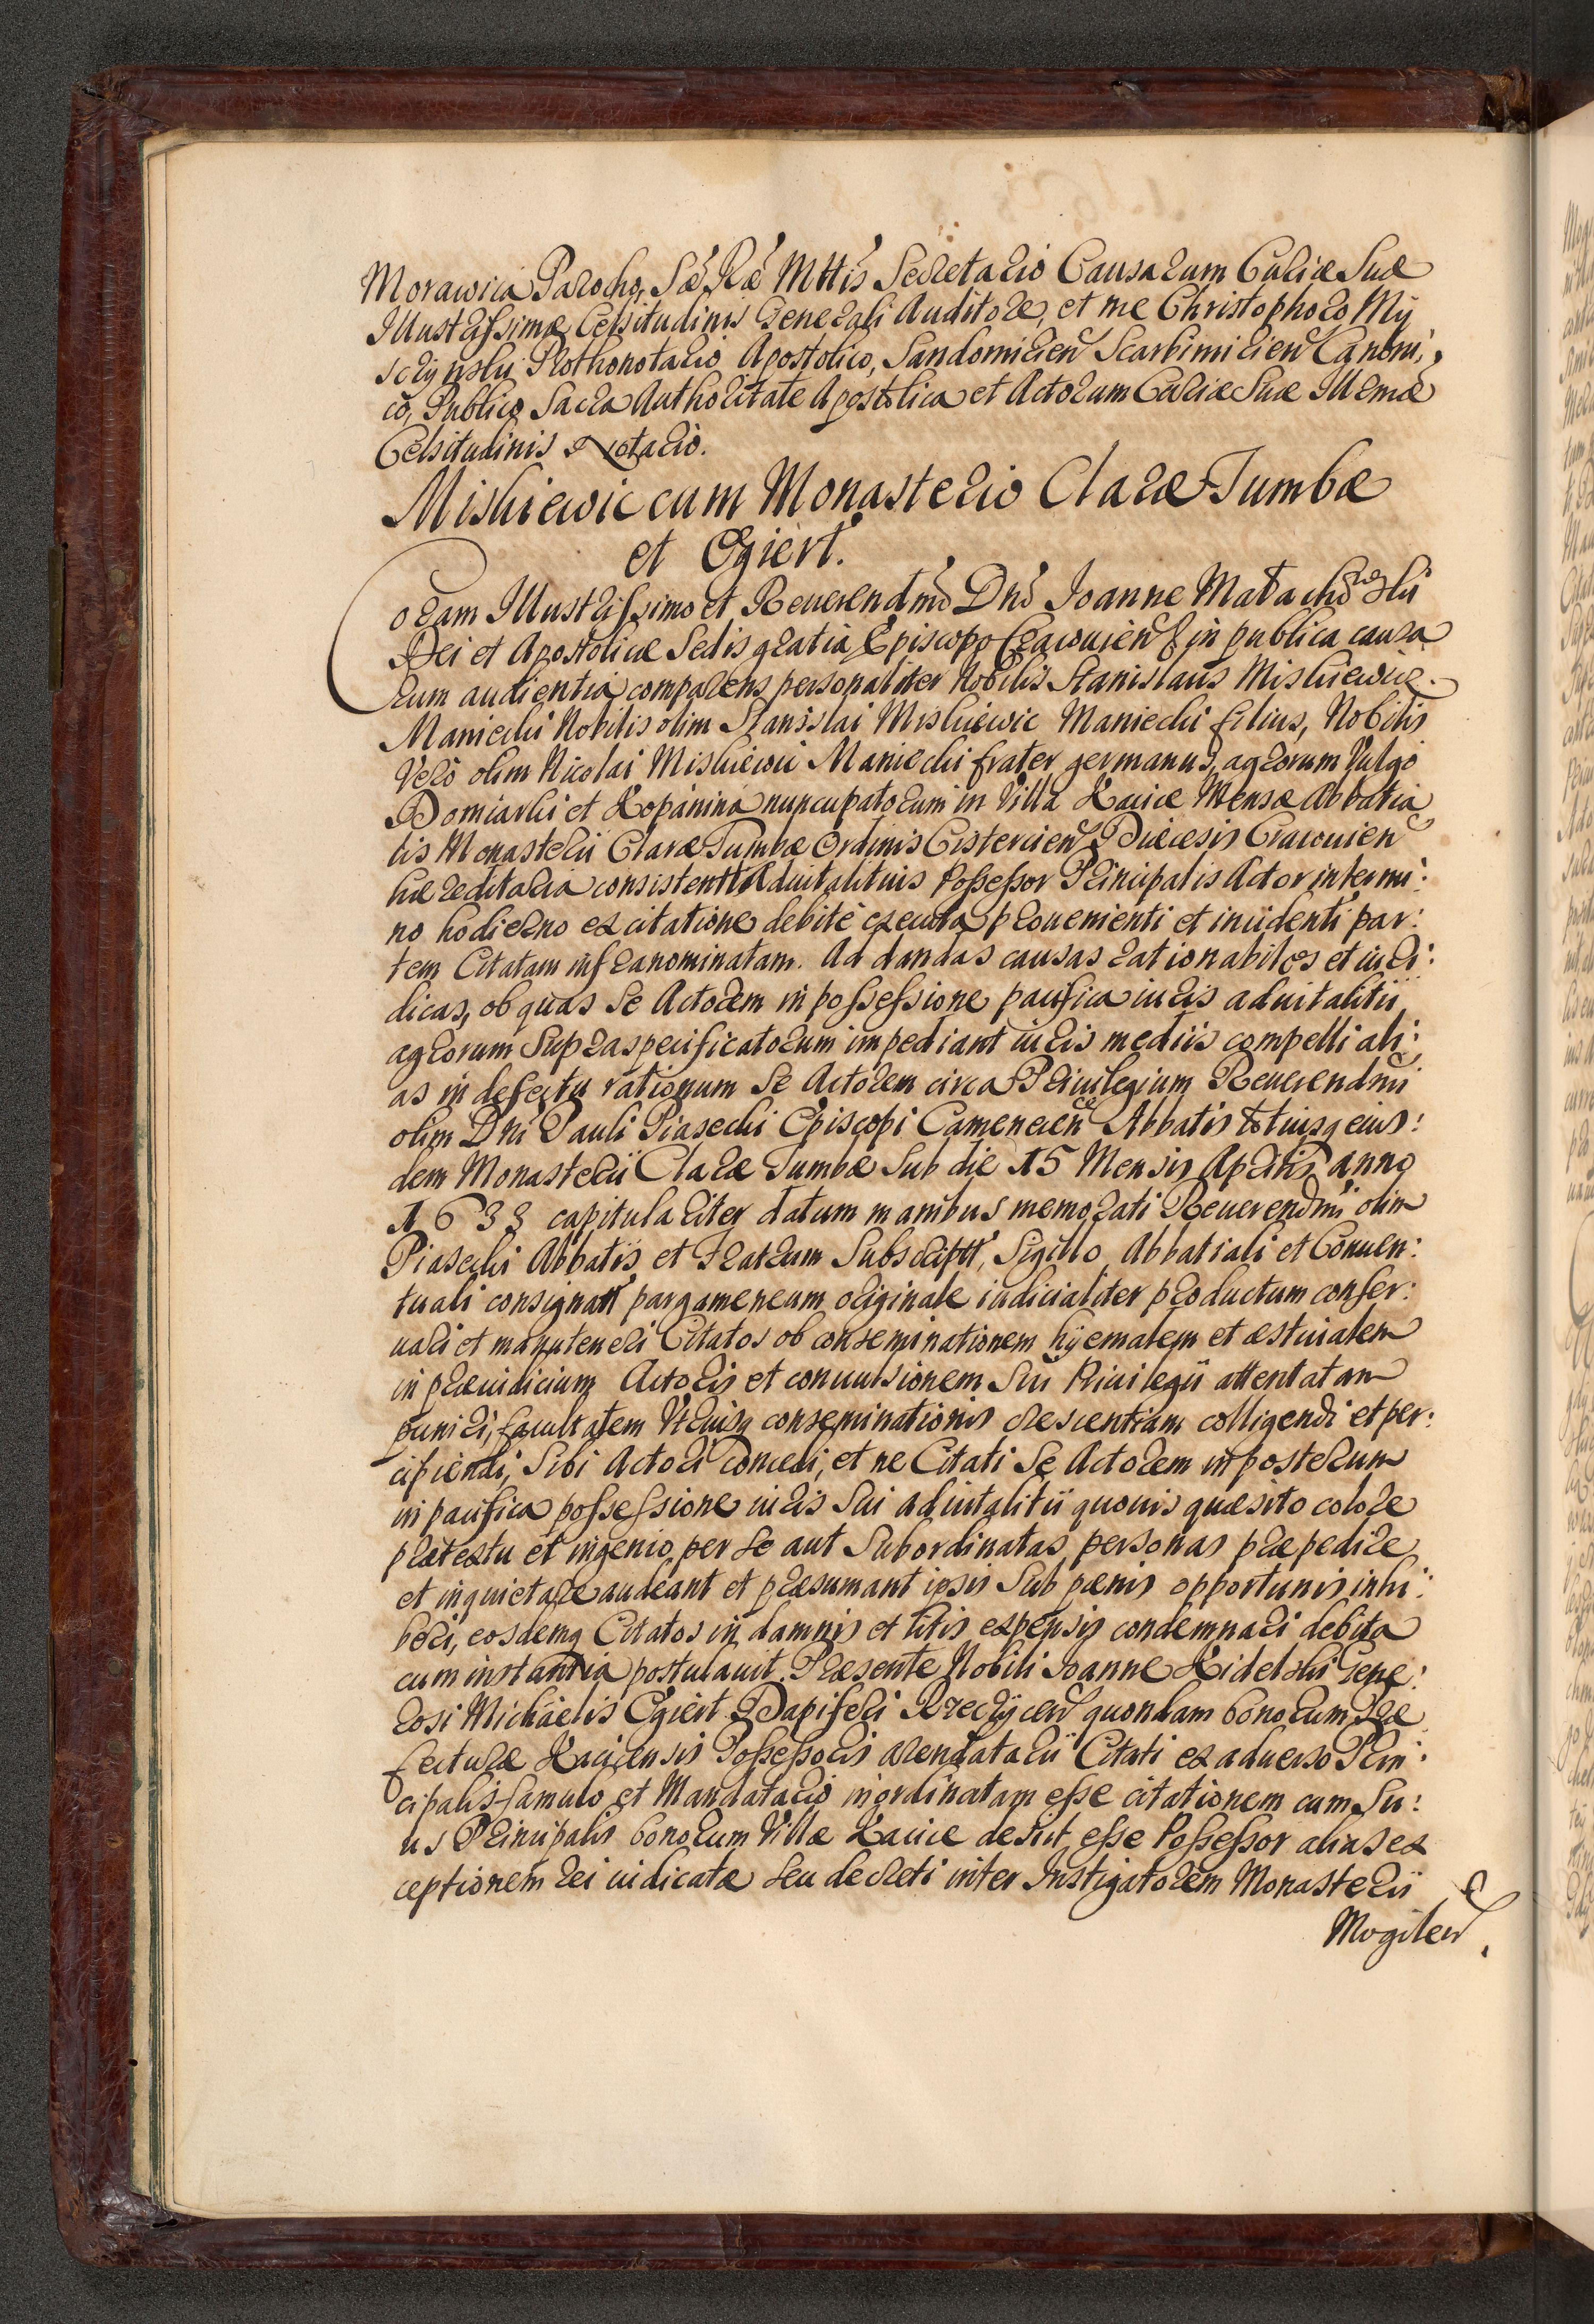 Morawica Parocho, Sæ Ræ Mttis Secretario Causarum Curiæ Suæ
Illustrissimæ Celsitudinis Generali Auditore, et me Christophoro My
sczynski Prothonotario Apostolico, Sandomirien Scarbimirien Canoni,
co, Publico Sacra Authoritate Apostolica et Actorum Curiæ Suæ Illmæ
Celsitudinis Notario.
Miskiewic cum Monasterio Claræ Tumbæ
et Egiert.
Coram Illustrissimo et Reuerendmo Dno Joanne Małachowski
Dei et Apostolicæ Sedis gratia Episcopo Cracouien in publica causa
rum audientia comparens personaliter Nobilis Stanislaus Miskiewic
Maniecki Nobilis olim Stanislai Miskiewic Maniecki filius, Nobilis
Vero olim Nicolai Miskiewic Maniecki frater germanus, agrorum Vulgo
Domiarki et Kopanina nuncupatorum in Villa Kacice Mensæ Abbatia
lis Monasterii Claræ Tumbæ Ordinis Cistercien Diæcesis Cracouien
hæreditaria consistentt Aduitalitius Possessor Principalis Actor in termi:
no hodierno ex citatione debite exeuta prouenienti et incidenti par:
tem Citatam infranominatam. Ad dandas causas rationabiles et iuri:
dicas, ob quas se Actorem in possessione pacifica iuris aduitalitii
agrorum Supraspecificatorum impediant iuris mediis compelli ali:
as in defectu rationum Se Actorem circa Priuilegium Reuerendmi
olim Dni Pauli Piasecki Episcopi Camenecen Abbatis totiusq eius:
dem Monasterii Claræ Tumbæ Sub die 15 Mensis Aprilis anno
1633 capitulariter datum manibus memorati Reuerendmi olim
Piasecki Abbatis et Fratrum Subscriptt, Sigillo Abbatiali et Conuen:
tuali consignatt pargameneum originale iudicialiter productum conser:
uari et manuteneri Citatos ob conseminationem hyemalem et æstiualem
in præiudicium Actoris et conuulsionem Sui Priuilegii attentatam
puniri, facultatem Vtriusq conseminationis crescentiam colligendi et per:
cipiendi, Sibi Actori concedi, et ne Citati Se Actorem in posterum
in pacifica possessione iuris Sui aduitalitii quouis quæsito colore
prætextu et ingenio per se aut Subordinatas personas præpedire
et inquietare audeant et præsumant ipsis Sub pænis opportunis inhi:
beri, eosdemq Citatos in damnis et litis expensis condemnari debita
cum instantia postulauit. Præsente Nobili Joanne Kidelski Gene:
rosi Michaelis Egiert Dapiferi Brzeczycen quondam bonorum Præ
fecturæ Kacicensis Possessoris arendatarii Citati ex aduerso Prin:
cipalis famulo et Mandatario inordinatam esse citationem cum Su:
us Principalis bonorum Villæ Kacice desiit esse Possessor alias ex
ceptionem rei iudicatæ seu decreti inter Instigatorem Monasterii
Mogilen